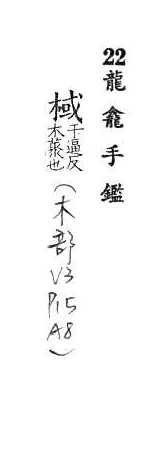 22龍龕手鑑
棫于逼反木藂也(木部V3P15A8)